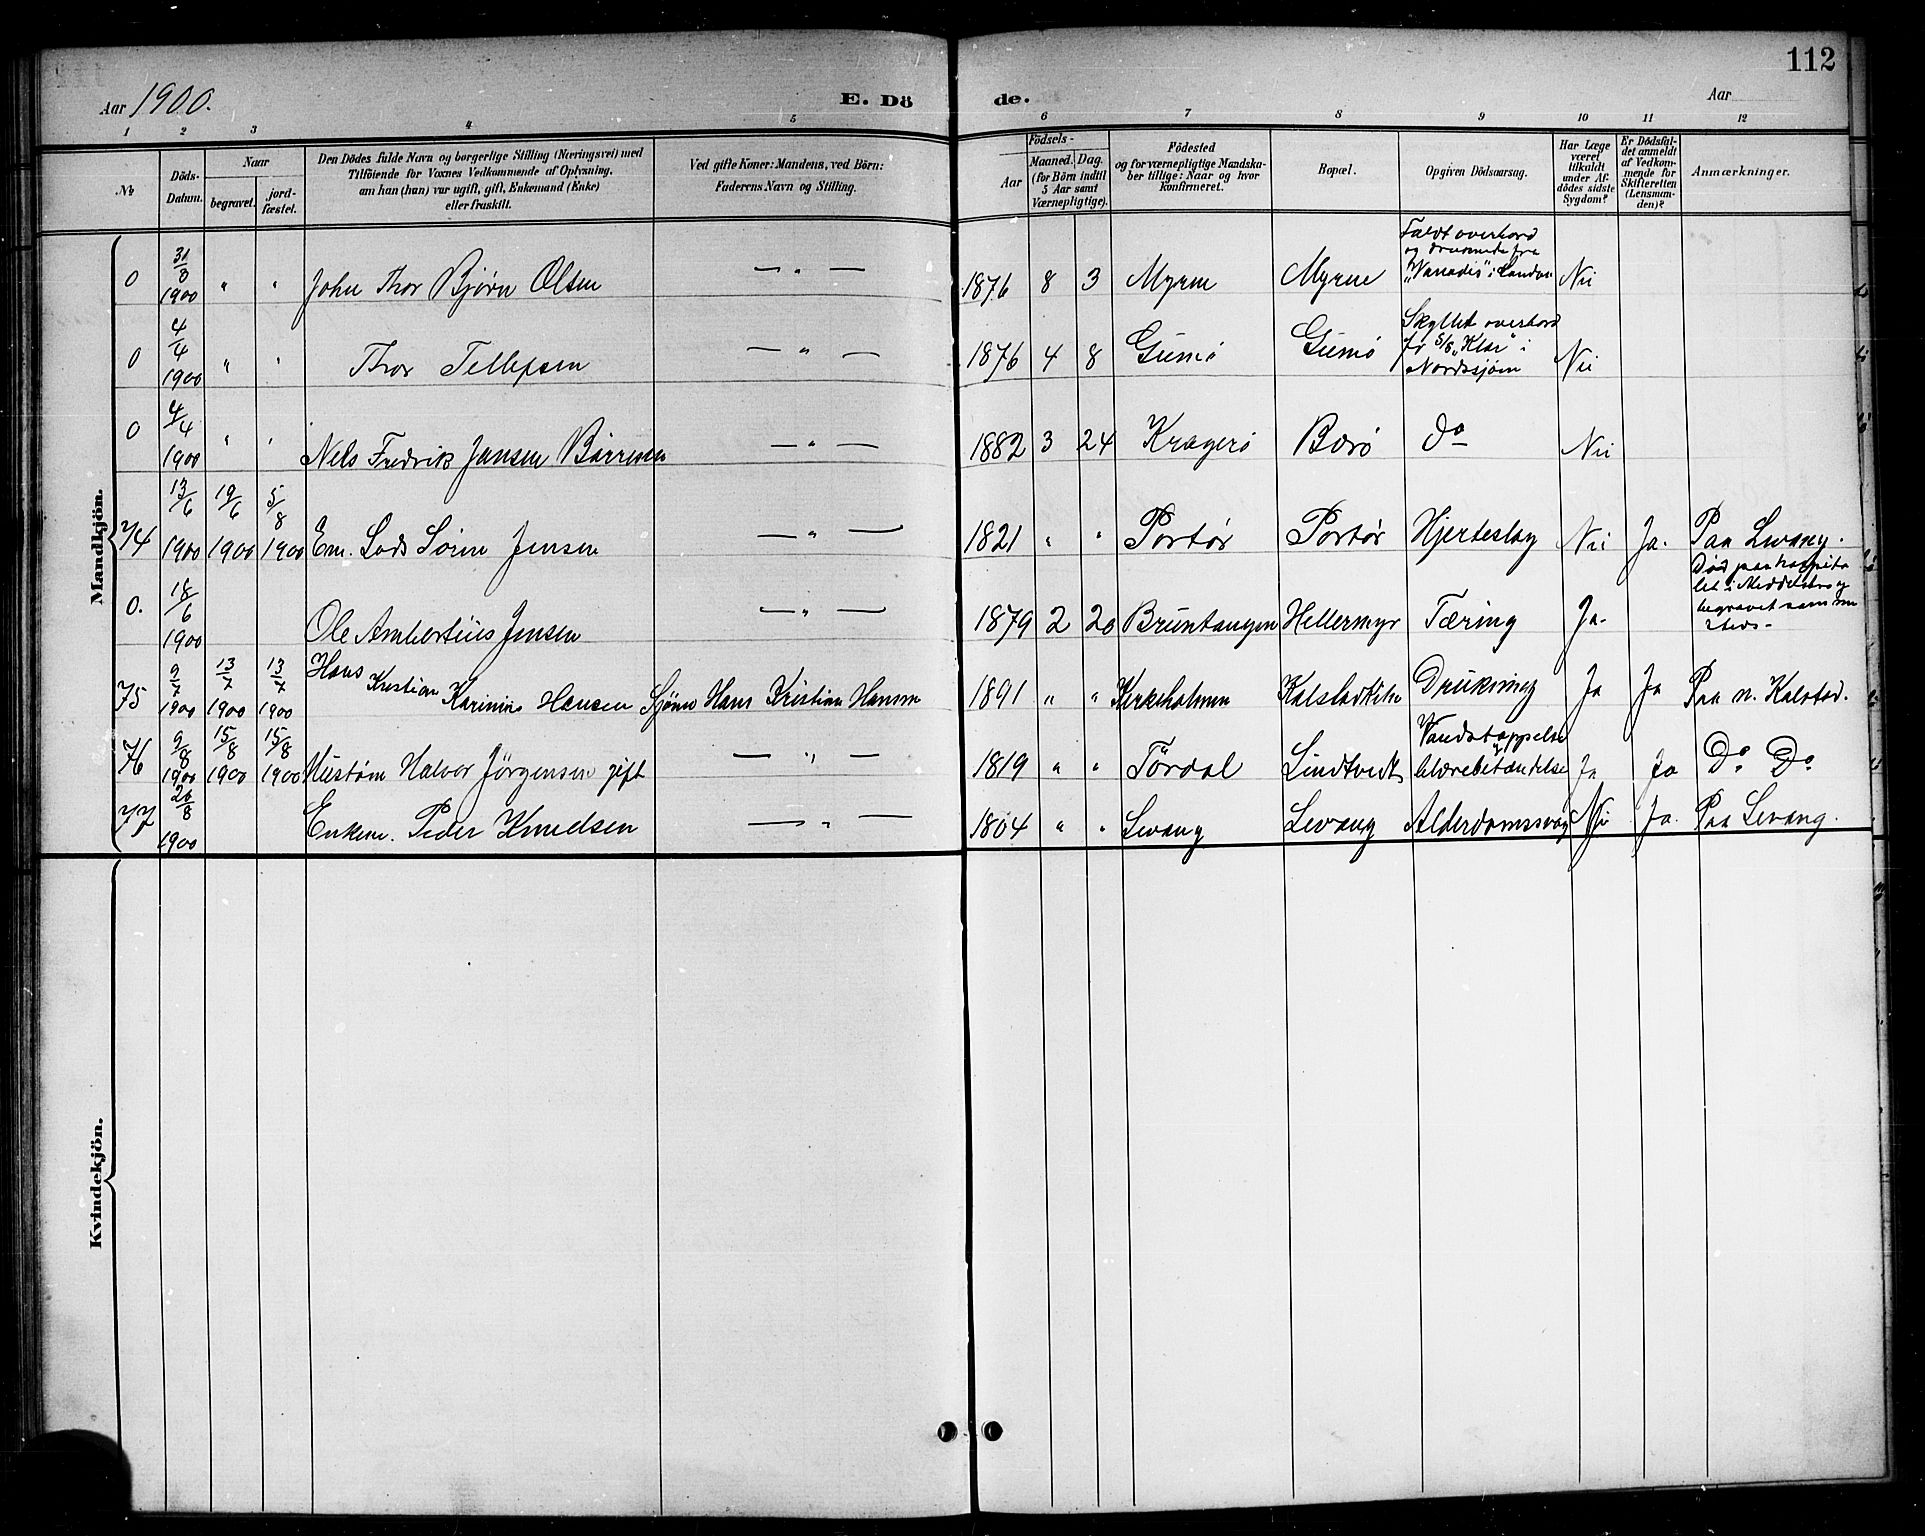 112
Aar 1900. E. Dö de. Aar
1 2 3 4 5 6 7 8 9 10 11 12
№ Döds-Datum. Naar begravet. jord-fæstet. Den Dödes fulde Navn og borgerlige Stilling (Næringsvei) med Tilföiende for Voxnes Vedkommende af Oplysning, om han (hun) var ugift, gift, Enkemand (Enke) eller fraskilt. Ved gifte Koner: Mandens, ved Börn: Faderens Navn og Stilling. Födsels- Aar Maaned. Dag. (for Börn indtil 5 Aar samt Værnepligtige). Födested og for værnepligtige Mandskaber tillige: Naar og hvor konfirmeret. Bopæl. Opgiven Dödsaarsag. Har Læge været tilkaldt under Afdödes sidste Sygdom? Er Dödsfaldet anmeldt af Vedkommende for Skifteretten (Lensmanden)? Anmærkninger.
Mandkjön.
0 31/3 1900 " " John Thor Bjørn Olsen — " — 1876 8 3 Myrene Myrene Faldt overbord og druknede fra "Vanadis" i London Nei
0 4/4 1900 " " Thor Tellefsen — " — 1876 4 8 Gumø Gumø Skyllet overbord fr S/S "Klar" i Nordsjøen Nei
0 4/4 1900 " " Nels Fredrik Jansen Börresen — " — 1882 3 24 Kragerö Berö Do Nei
74 13/6 1900 19/6 1900 5/8 1900 Em. Lods Sören Jensen — " — 1821 " " Portør Portør Hjerteslag Nei Ja. Paa Levang.
0. 18/6 1900 Ole Ambortius Jensen — " — 1879 2 20 Bruntangen Hellermyr Tæring Ja. Död paa hospitalet i Meddelsbro og begravet samme steds-
75 9/7 1900 13/7 1900 13/7 1900 Hans Kristian Karinius Hansen Sjöm Hans Kristian Hansen 1891 " " Kirkeholmen Kalstadkilen Drukning Ja Ja Paa n. Kalstad.
76 9/8 1900 15/8 1900 15/8 1900 Halvor Jörgensen gift — " — 1819 " " Tördal Lindtvedt Vandstoppelse og blærebetændelse Ja Ja Do Do
77 20/8 1900 Enkem. Peder Knudsen — " — 1804 " " Levang Levang Alderdomssvag Nei Ja. Paa Levang.
Kvindekjön.